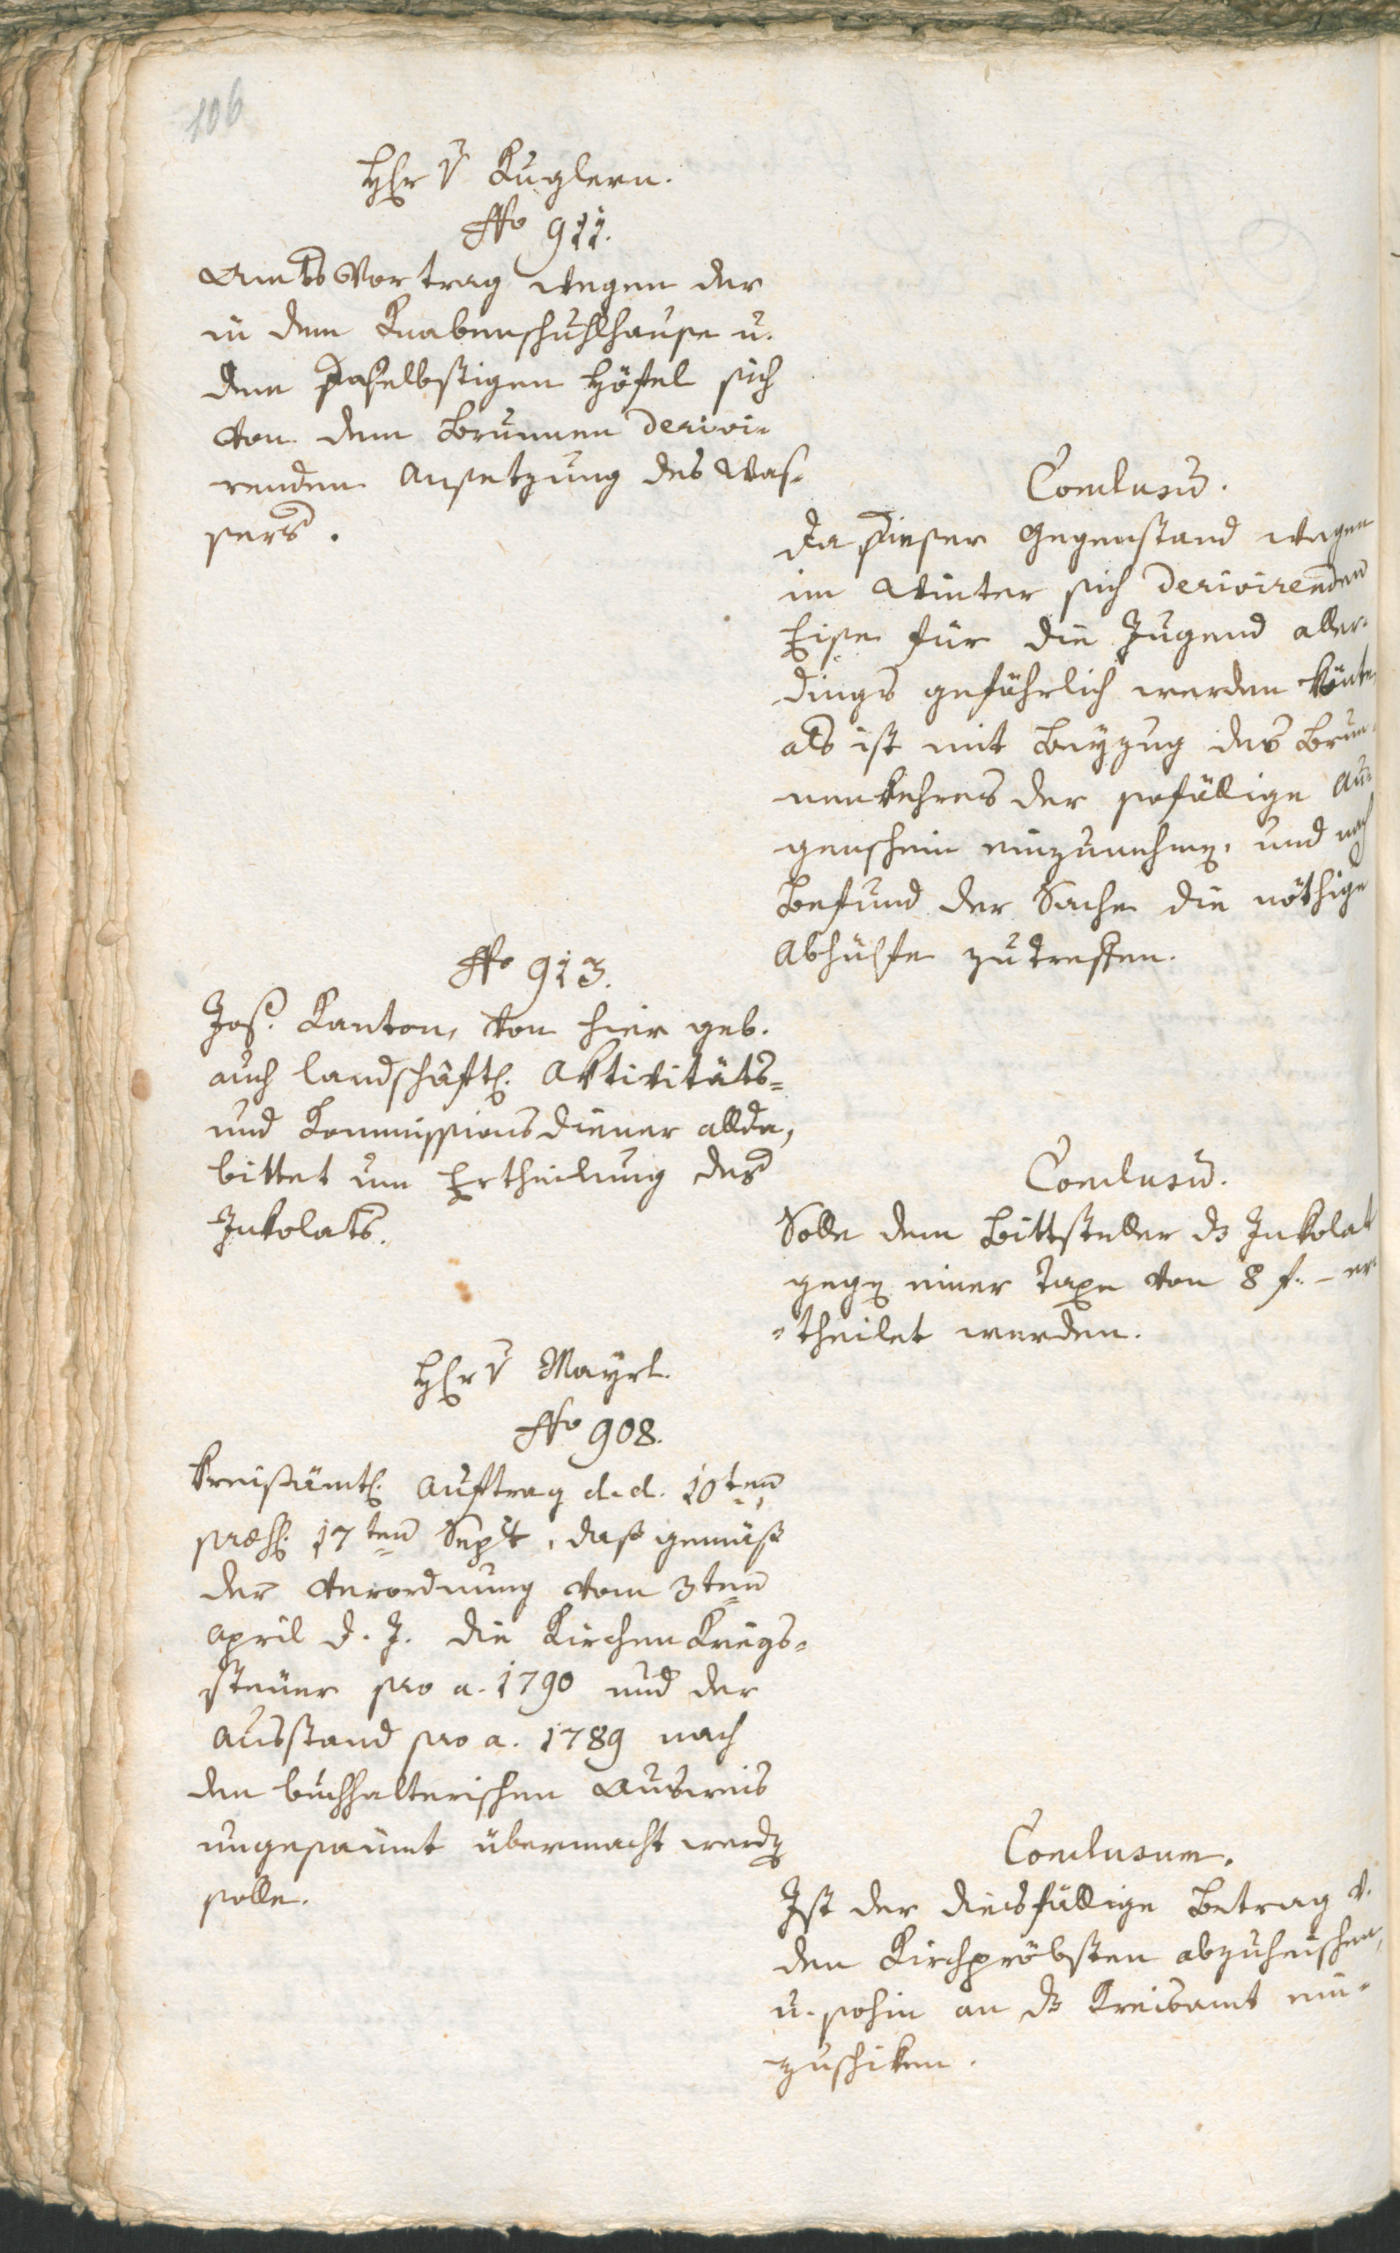 106
H[er]r v Kuglern.
No 911.
Amts Vortrag wegen der
in dem Knabenschuhlhause u.
dem daselbstigen Höfel sich
von dem Brunnen derivi-
renden Ansetzung des Was-
sers.
Conclusu̅.
Da dieser Gegenstand wegen
im Winter sich derivirenden
Eise für die Jugend aller-
dings gefährlich werden könte,
als ist mit Beyzug des Brun-
nenkehrers der sofällige Au-
genschein einzunehmen, und nach
Befund der Sache die nöthige
Abhülfe zu treffen.
No 913.
Jos. Kanton, von hier geb.
auch landschäftl. Aktivitäts-
und Kommissionsdiener allda,
bittet um Ertheilung des
Inkolats.
Conclusu̅.
Solle dem Bittsteller ds Inkolat
gegen einer Taxe von 8 f. – er-
theilet werden.
H[er]r v Mayrl.
No 908.
Kreisämtl. Auftrag d. d. 10ten
præs. 17ten Sept, daß gemäß
der Verordnung vom 3ten
April d. J. die Kirchen Kriegs-
steuer pro a. 1790 und der
Ausstand pro a. 1789 nach
dem buchhalterischen Ausweis
ungesaumt übermacht werden
solle.
Conclusum.
Ist der diesfällige Betrag v.
den Kirchpröbsten abzuheischen,
u. sohin an ds Kreisamt ein-
zuschiken.